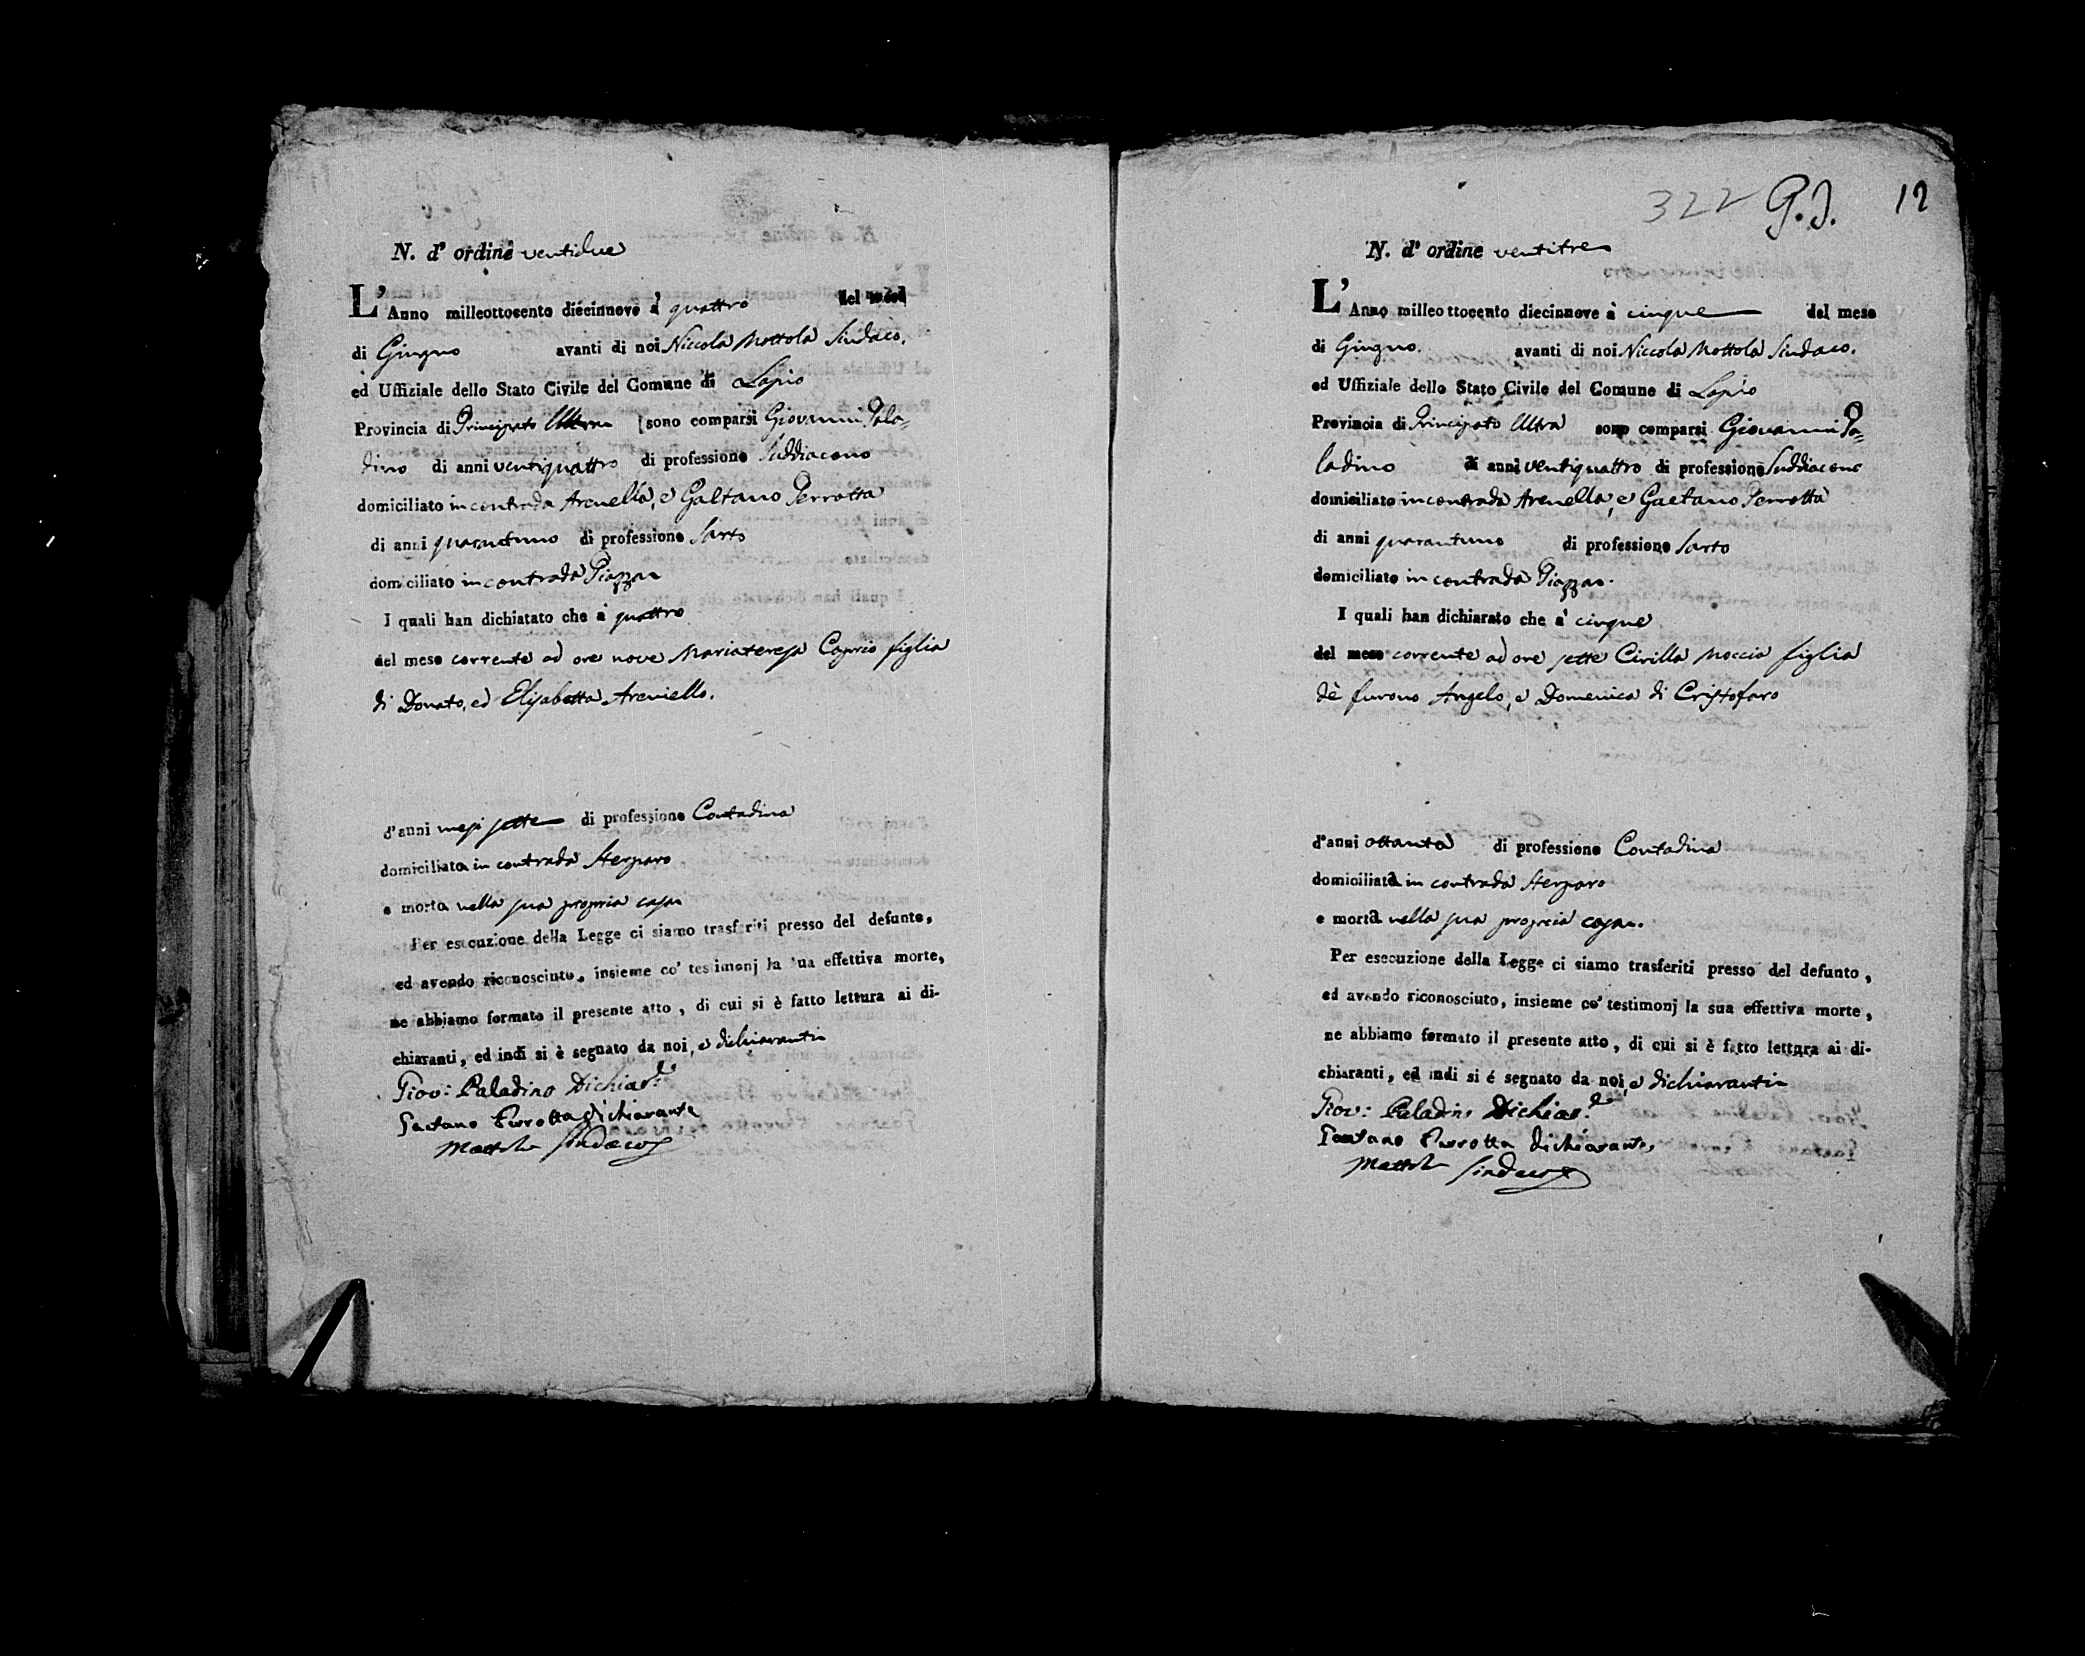 N. d' ordine ventidue
L'Anno milleottocento diecinnove à quattro del mese
di Giugno avanti di noi Niccola Mottola Sindaco,
ed Uffiziale dello Stato Civile del Comune di Lapio
Provincia di Principato Ultra sono comparsi Giovanni Pala=
dino di anni ventiquattro di professione Suddiacono
domiciliato in contrada Arenella, e Gaetano Perrotta
di anni quarantuno di professione Sarto
domiciliato in contrada Piazza
I quali han dichiatato che à quattro
del mese corrente ad ore nove Mariateresa Caprio figlia
di Donato, ed Elisabetta Areniello.
d'anni mesi sette di professione Contadina
domiciliata in contrada Sterparo
e morta nella sua propria casa
Per esecuzione della Legge ci siamo trasferiti presso del defunto,
ed avendo riconosciuto, insieme co' testimonj la sua effettiva morte,
ne abbiamo formato il presente atto, di cui si è fatto lettura ai di-
chiaranti, ed indi si è segnato da noi, e dichiaranti
Giov: Paladino Dichiar.e
Gaetano Perrotta dichiarante
Mottola Sindaco
322 G.J. 12
N. d' ordine ventitre
L'Anno milleottocento diecinnove à cinque del mese
di Giugno. avanti di noi Niccola Mottola Sindaco.
ed Uffiziale dello Stato Civile del Comune di Lapio
Provincia di Principato Ultra sono comparsi Giovanni Pa=
ladino di anni ventiquattro di professione Suddiacono
domiciliato in contrada Arenella, e Gaetano Perrotta
di anni quarantuno di professione Sarto
domiciliato in contrada Piazza.
I quali han dichiarato che a' cinque
del mese corrente ad ore sette Cirilla Moccia figlia
dè furono Angelo, e Domenica di Cristofaro
d'anni ottanta di professione Contadina
domiciliata in contrada Sterparo
e morta nella sua propria casa.
Per esecuzione della Legge ci siamo trasferiti presso del defunto,
ed avendo riconosciuto, insieme co' testimonj la sua effettiva morte,
ne abbiamo formato il presente atto, di cui si è fatto lettura ai di-
chiaranti, ed indi si é segnato da noi, e dichiaranti
Giov: Paladino Dichiar.e
Gaetano Perrotta dichiarante
Mottola Sindaco